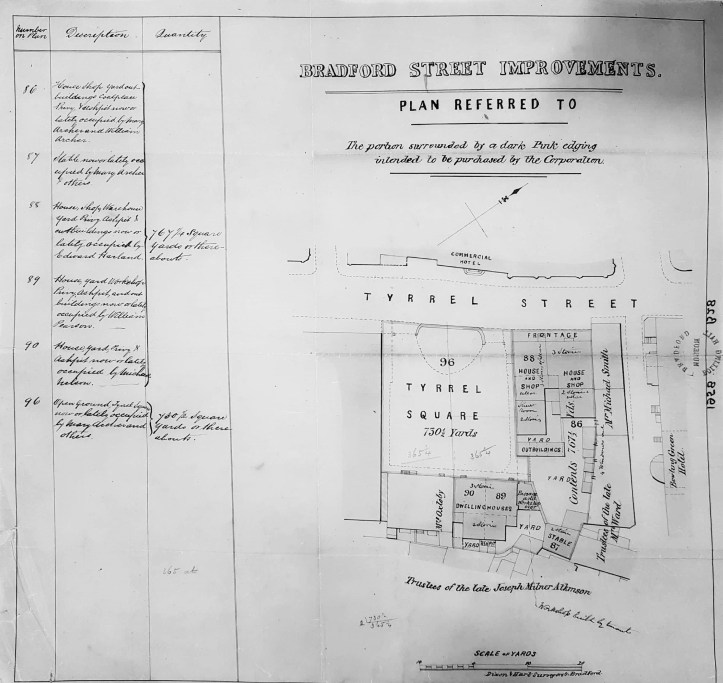 Number on Plan
Description
Quantity
86
House Shop Yard out-
buildings Coalplace
Privy & Ashpit now or
lately occupied by Mary
Archer and William
Archer.
87
Stable now or lately occ
upied by Mary Archer
& others
88
House, Shop, Warehouse
Yard Privy Ashpit &
outbuildings now or
lately occupied by
Edward Harland.
767 1/4 Square
yards or there-
abouts
89
House, Yard, Workshop
Privy, Ashpit, and out
buildings now or lately
occupied by William
Pearson.
90
House, Yard, Privy &
Ashpit now or lately
occupied by
96
Open Ground, Tyrrel Square
now or lately occupied
by Mary Archer and
others
730 1/2 Square
Yards or there
abouts.
BRADFORD STREET IMPROVEMENTS.
PLAN REFERRED TO
The portion surrounded by a dark Pink edging
intended to be purchased by the Corporation.
COMMERCIAL
HOTEL
TYRREL STREET
FRONTAGE
96
TYRREL
SQUARE
730½ Yards
3654
3654
88
HOUSE
AND
SHOP
3 stories
HOUSE
AND
SHOP
2 stories
YARD
OUTBUILDINGS
86
Contents 767¼ Yds.
YARD
Mr. Michael Smith
Trustees of the late
Mr. Ward
Bowling Green
Hotel
3 stories
90 89
DWELLING HOUSES
2 stories
YARD
YARD
STABLE
87
Trustees of the late Joseph Milner Atkinson
Workshop built by tenant
SCALE OF YARDS
10 0 10 20
Dixon & Hart Surveyors Bradford
BRADFORD